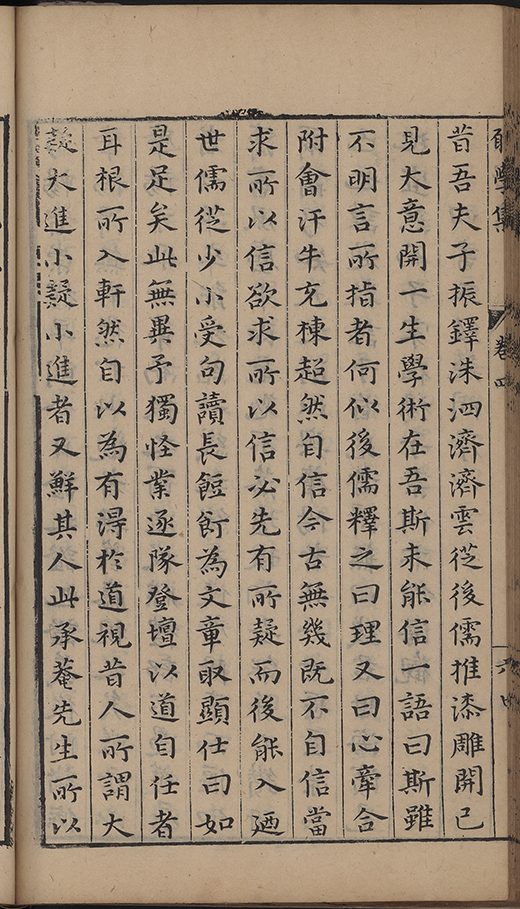 學集 卷四
昔吾夫子振鐸洙泗濟濟雲從後儒推漆雕開已
見大意開一生學術在吾斯未能信一語曰斯雖
不明言所指者何似後儒釋之曰理又曰心牽合
附會汗牛充棟超然自信今古無幾既不自信當
求所以信欲求所以信必先有所疑而後能入廼
世儒從少小受句讀長飣餖為文章取顯仕曰如
是足矣此無異予獨怪業逐隊登壇以道自任者
耳根所入軒然自以為有得於道視昔人所謂大
疑大進小疑小進者又鮮其人此承菴先生所以